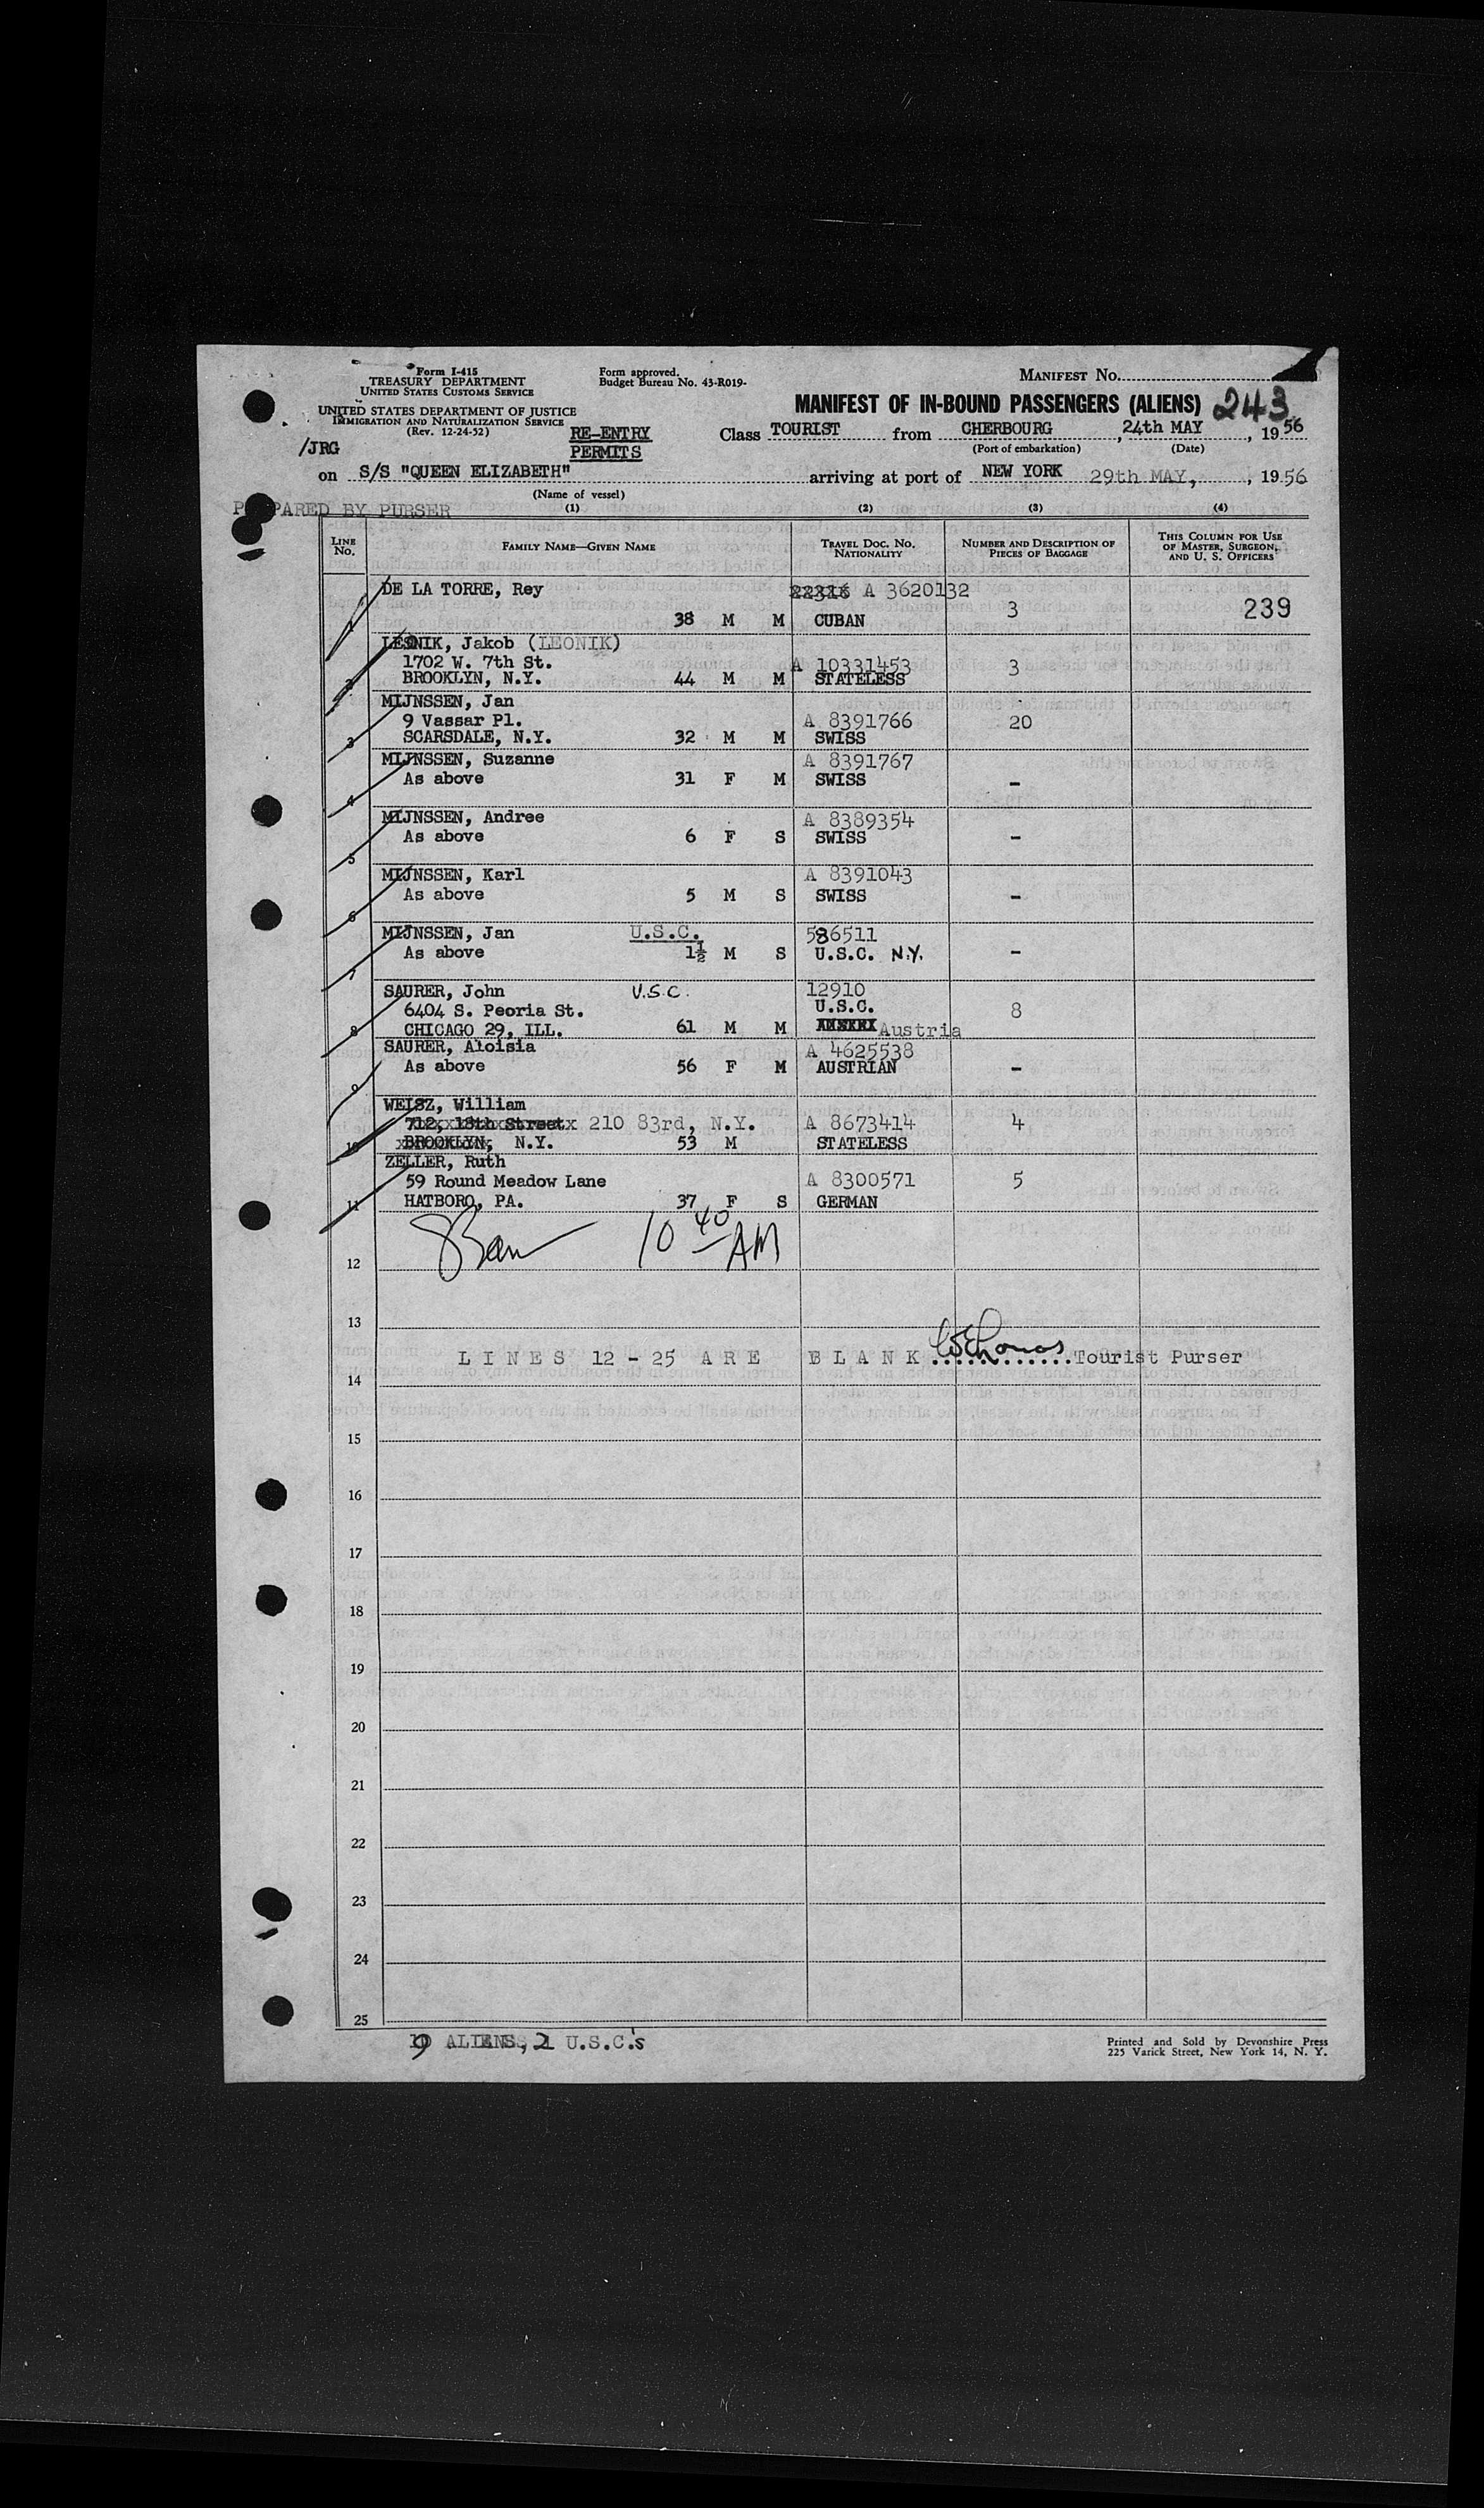 Form I-415
TREASURY DEPARTMENT
UNITED STATES CUSTOMS SERVICE
Form approved.
Budget Bureau No. 43-R019-
MANIFEST No.
UNITED STATES DEPARTMENT OF JUSTICE
IMMIGRATION AND NATURALIZATION SERVICE
(Rev. 12-24-52)
MANIFEST OF IN-BOUND PASSENGERS (ALIENS) 243
/JRG
RE-ENTRY
PERMITS
Class TOURIST from CHERBOURG, 24th MAY, 1956
(Port of embarkation) (Date)
on S/S "QUEEN ELIZABETH" arriving at port of NEW YORK 29th MAY, , 1956
(Name of vessel)
PREPARED BY PURSER
(1) (2) (3) (4)
LINE No. FAMILY NAME—GIVEN NAME TRAVEL DOC. NO. NATIONALITY NUMBER AND DESCRIPTION OF PIECES OF BAGGAGE THIS COLUMN FOR USE OF MASTER, SURGEON, AND U. S. OFFICERS
DE LA TORRE, Rey 22316 A 3620132
1 38 M M CUBAN 3 239
LEONIK, Jakob (LEONIK)
1702 W. 7th St. A 10331453 3
2 BROOKLYN, N.Y. 44 M M STATELESS
MIJNSSEN, Jan
9 Vassar Pl. A 8391766 20
3 SCARSDALE, N.Y. 32 M M SWISS
MIJNSSEN, Suzanne A 8391767
As above 31 F M SWISS -
4
MIJNSSEN, Andree A 8389354
As above 6 F S SWISS -
5
MIJNSSEN, Karl A 8391043
As above 5 M S SWISS -
6
MIJNSSEN, Jan U.S.C. 586511
As above 1½ M S U.S.C. N.Y. -
7
SAURER, John U.S.C. 12910
6404 S. Peoria St. U.S.C. 8
8 CHICAGO 29, ILL. 61 M M Austria
SAURER, Aloisia A 4625538
As above 56 F M AUSTRIAN -
9
WEISZ, William
712, 18th Street 210 83rd, N.Y. A 8673414 4
10 BROOKLYN, N.Y. 53 M STATELESS
ZELLER, Ruth
59 Round Meadow Lane A 8300571 5
11 HATBORO, PA. 37 F S GERMAN
10 40 AM
12
13
LINES 12 - 25 ARE BLANK.............Tourist Purser
14
15
16
17
18
19
20
21
22
23
24
25
9 ALIENS, 2 U.S.C.'s
Printed and Sold by Devonshire Press
225 Varick Street, New York 14, N. Y.